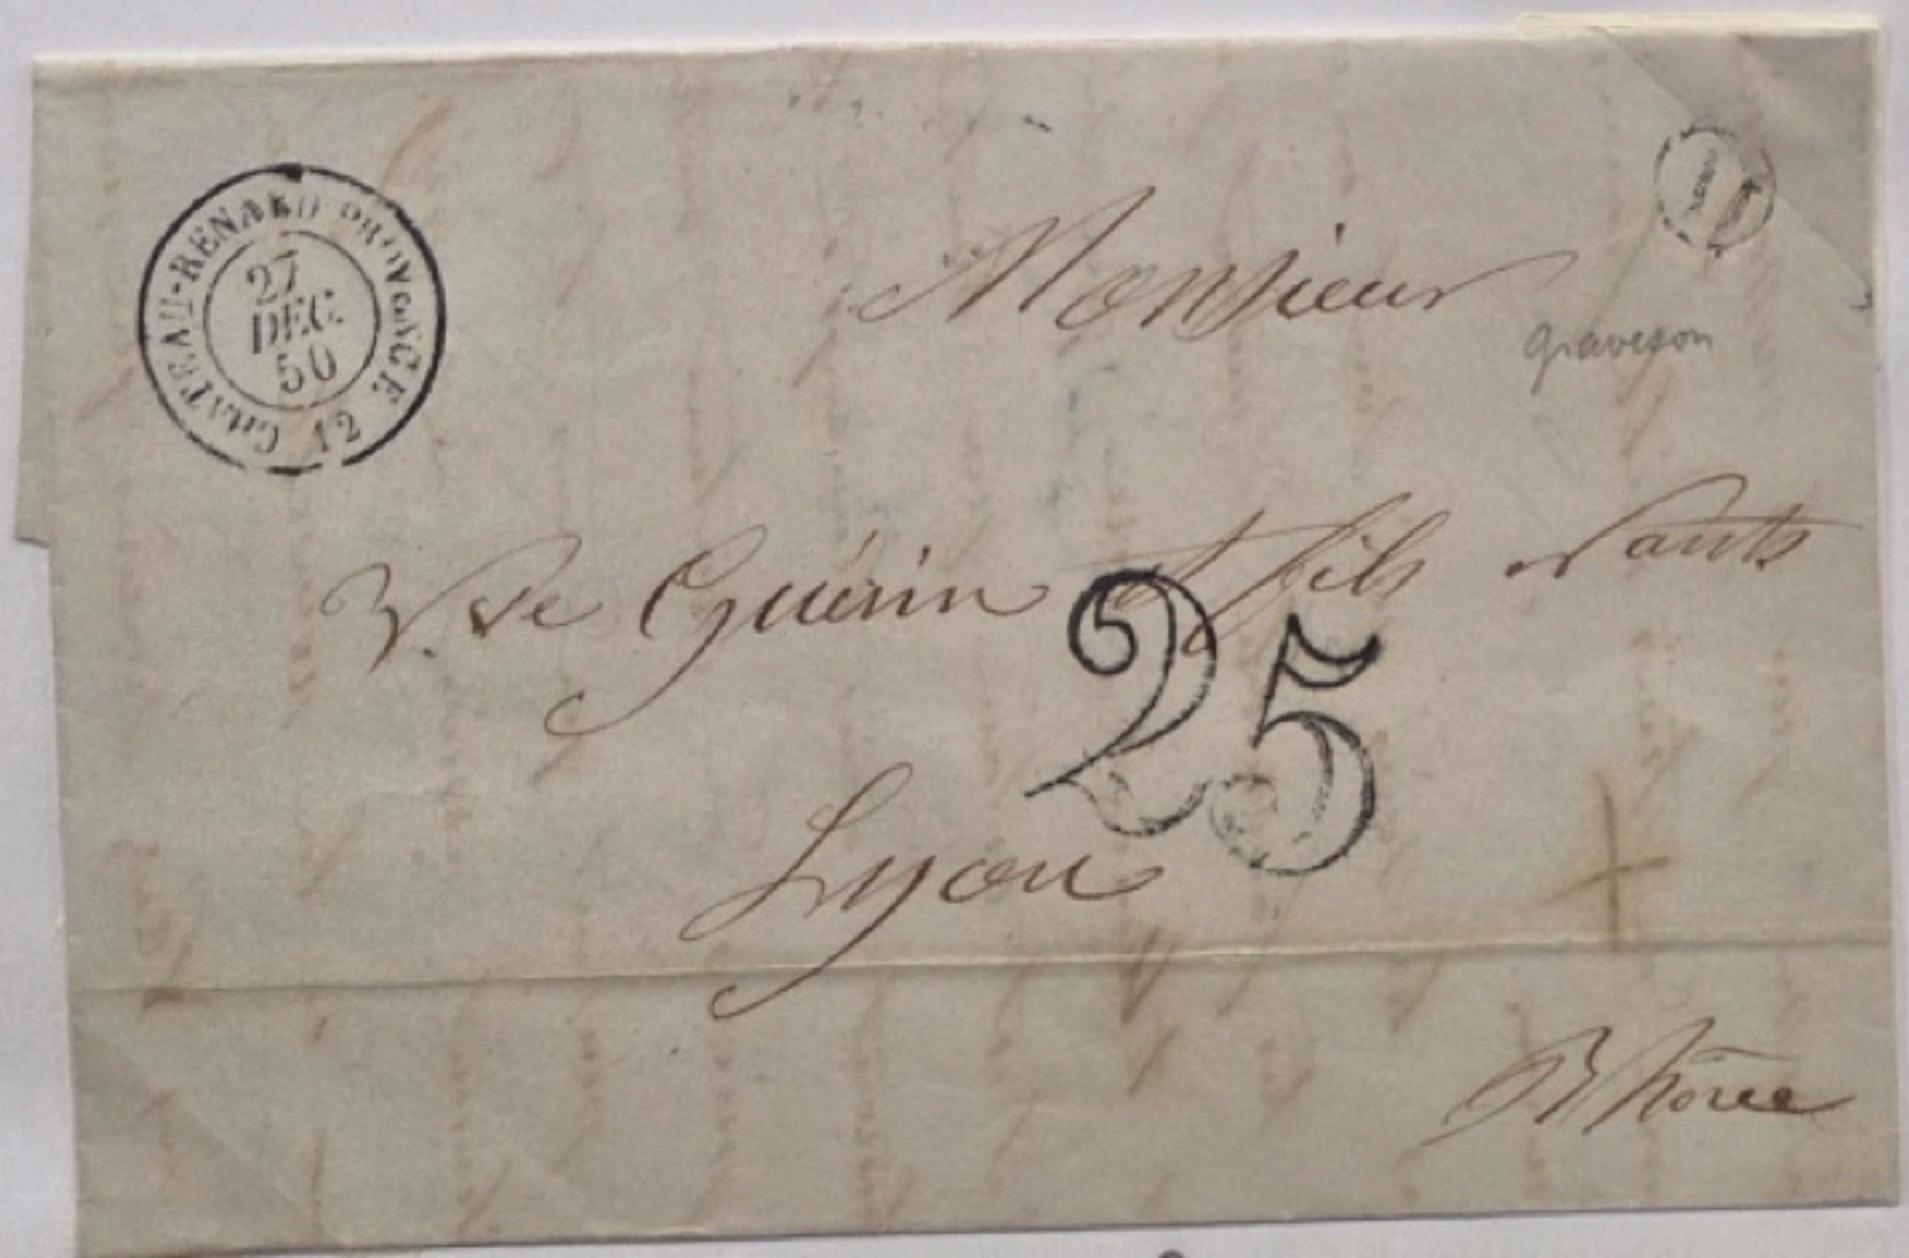 CHATEAU-RENARD PROVENCE 12
27
DEC.
50
Monsieur
graveson
V. ve Guérin & fils
25
Lyon
Rhône